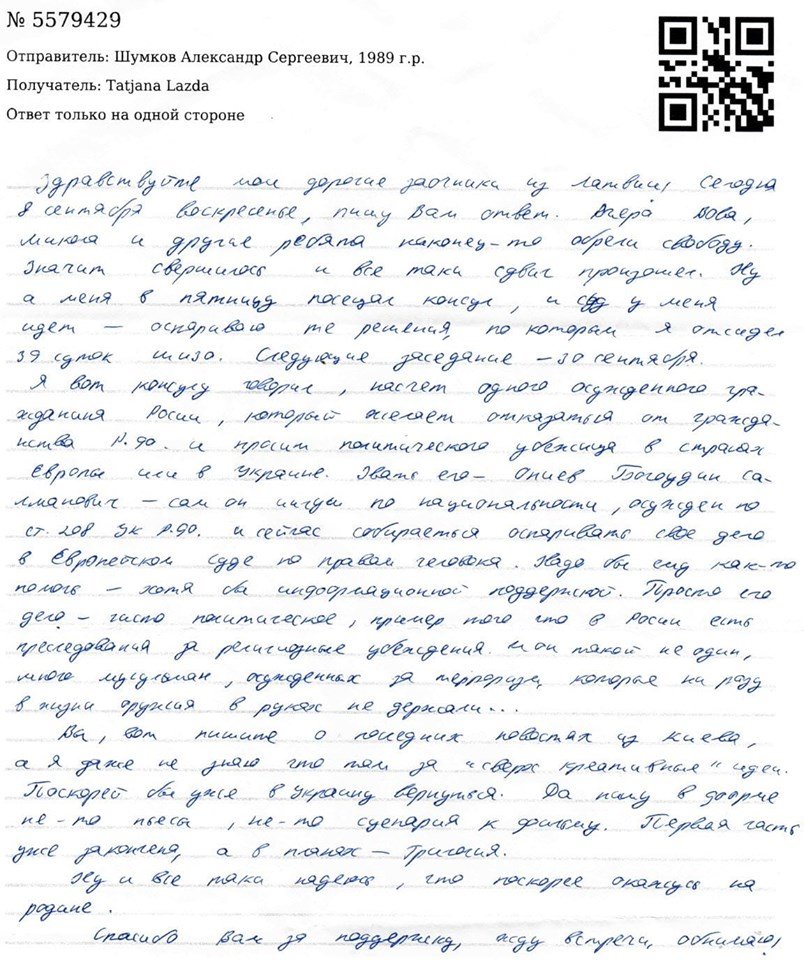 № 5579429
Отправитель: Шумков Александр Сергеевич, 1989 г.р.
Получатель: Tatjana Lazda
Ответ только на одной стороне
Здравствуйте мои дорогие заочники из Латвии, Сегодня
8 сентября воскресенье, пишу Вам ответ. Вчера Вова,
Микола и другие ребята наконец-то обрели свободу.
Значит свершилось и все таки сдвиг произошел. Ну
а меня в пятницу посещал консул, и суд у меня
идет — оспариваю те решения, по которым я отсидел
39 суток шизо. Следующие заседание — 30 сентября.
Я вот консулу говорил, насчет одного осужденного гра-
жданина Росии, который желает отказаться от граждан-
нства Р.Ф. и просит политического убежища в странах
Европы или в Украине. Звать его — Богоудин Са-
лманович — сам он ингуш по национальности, осужден по
ст. 208 УК Р.Ф. и сейчас собирається оспаривать свое дело
в Европейском суде по правам человека. Надо бы ему как-то
помочь — хотя бы информационной поддержкой. Просто его
дело — чисто политическое, пример того что в Росии есть
преследования за религиозные убеждения. И он такой не один,
много мусульман, осужденных за терроризм, которые ни разу
в жизни оружия в руках не держали...
Вы, вот пишите о последних новостях из Киева,
а я даже не знаю что там за "сверх креативные" идеи.
Поскорей бы уже в Украину вернуться. Да пишу в форме
не-то пьесы, не-то сценария к фильму. Первая часть
уже закончена, а в планах — Трилогия.
Ну и все таки надеюсь, что поскорее окажусь на
родине.
Спасибо Вам за поддержку, жду встречи, обнимаю,